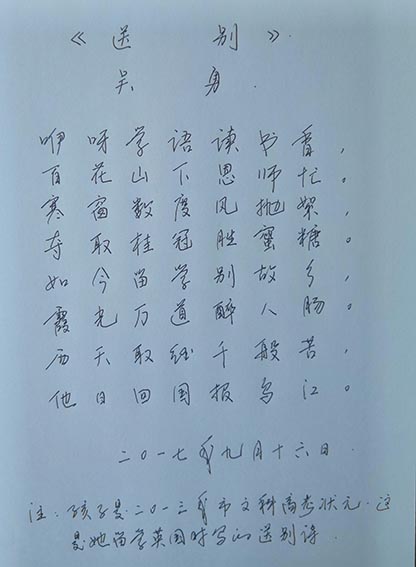 《送别》.
吴勇
咿呀学语读书香，
百花山下思师忙。
寒窗数度风抛絮，
夺取桂冠胜蜜糖。
如今留学别故乡，
霞光万道醉人肠。
历天取经千般苦，
他日回国报乌江。
二〇一七年九月十六日
注：孩子是二〇一三年市文科高考状元.这
是她留学英国时写的送别诗.